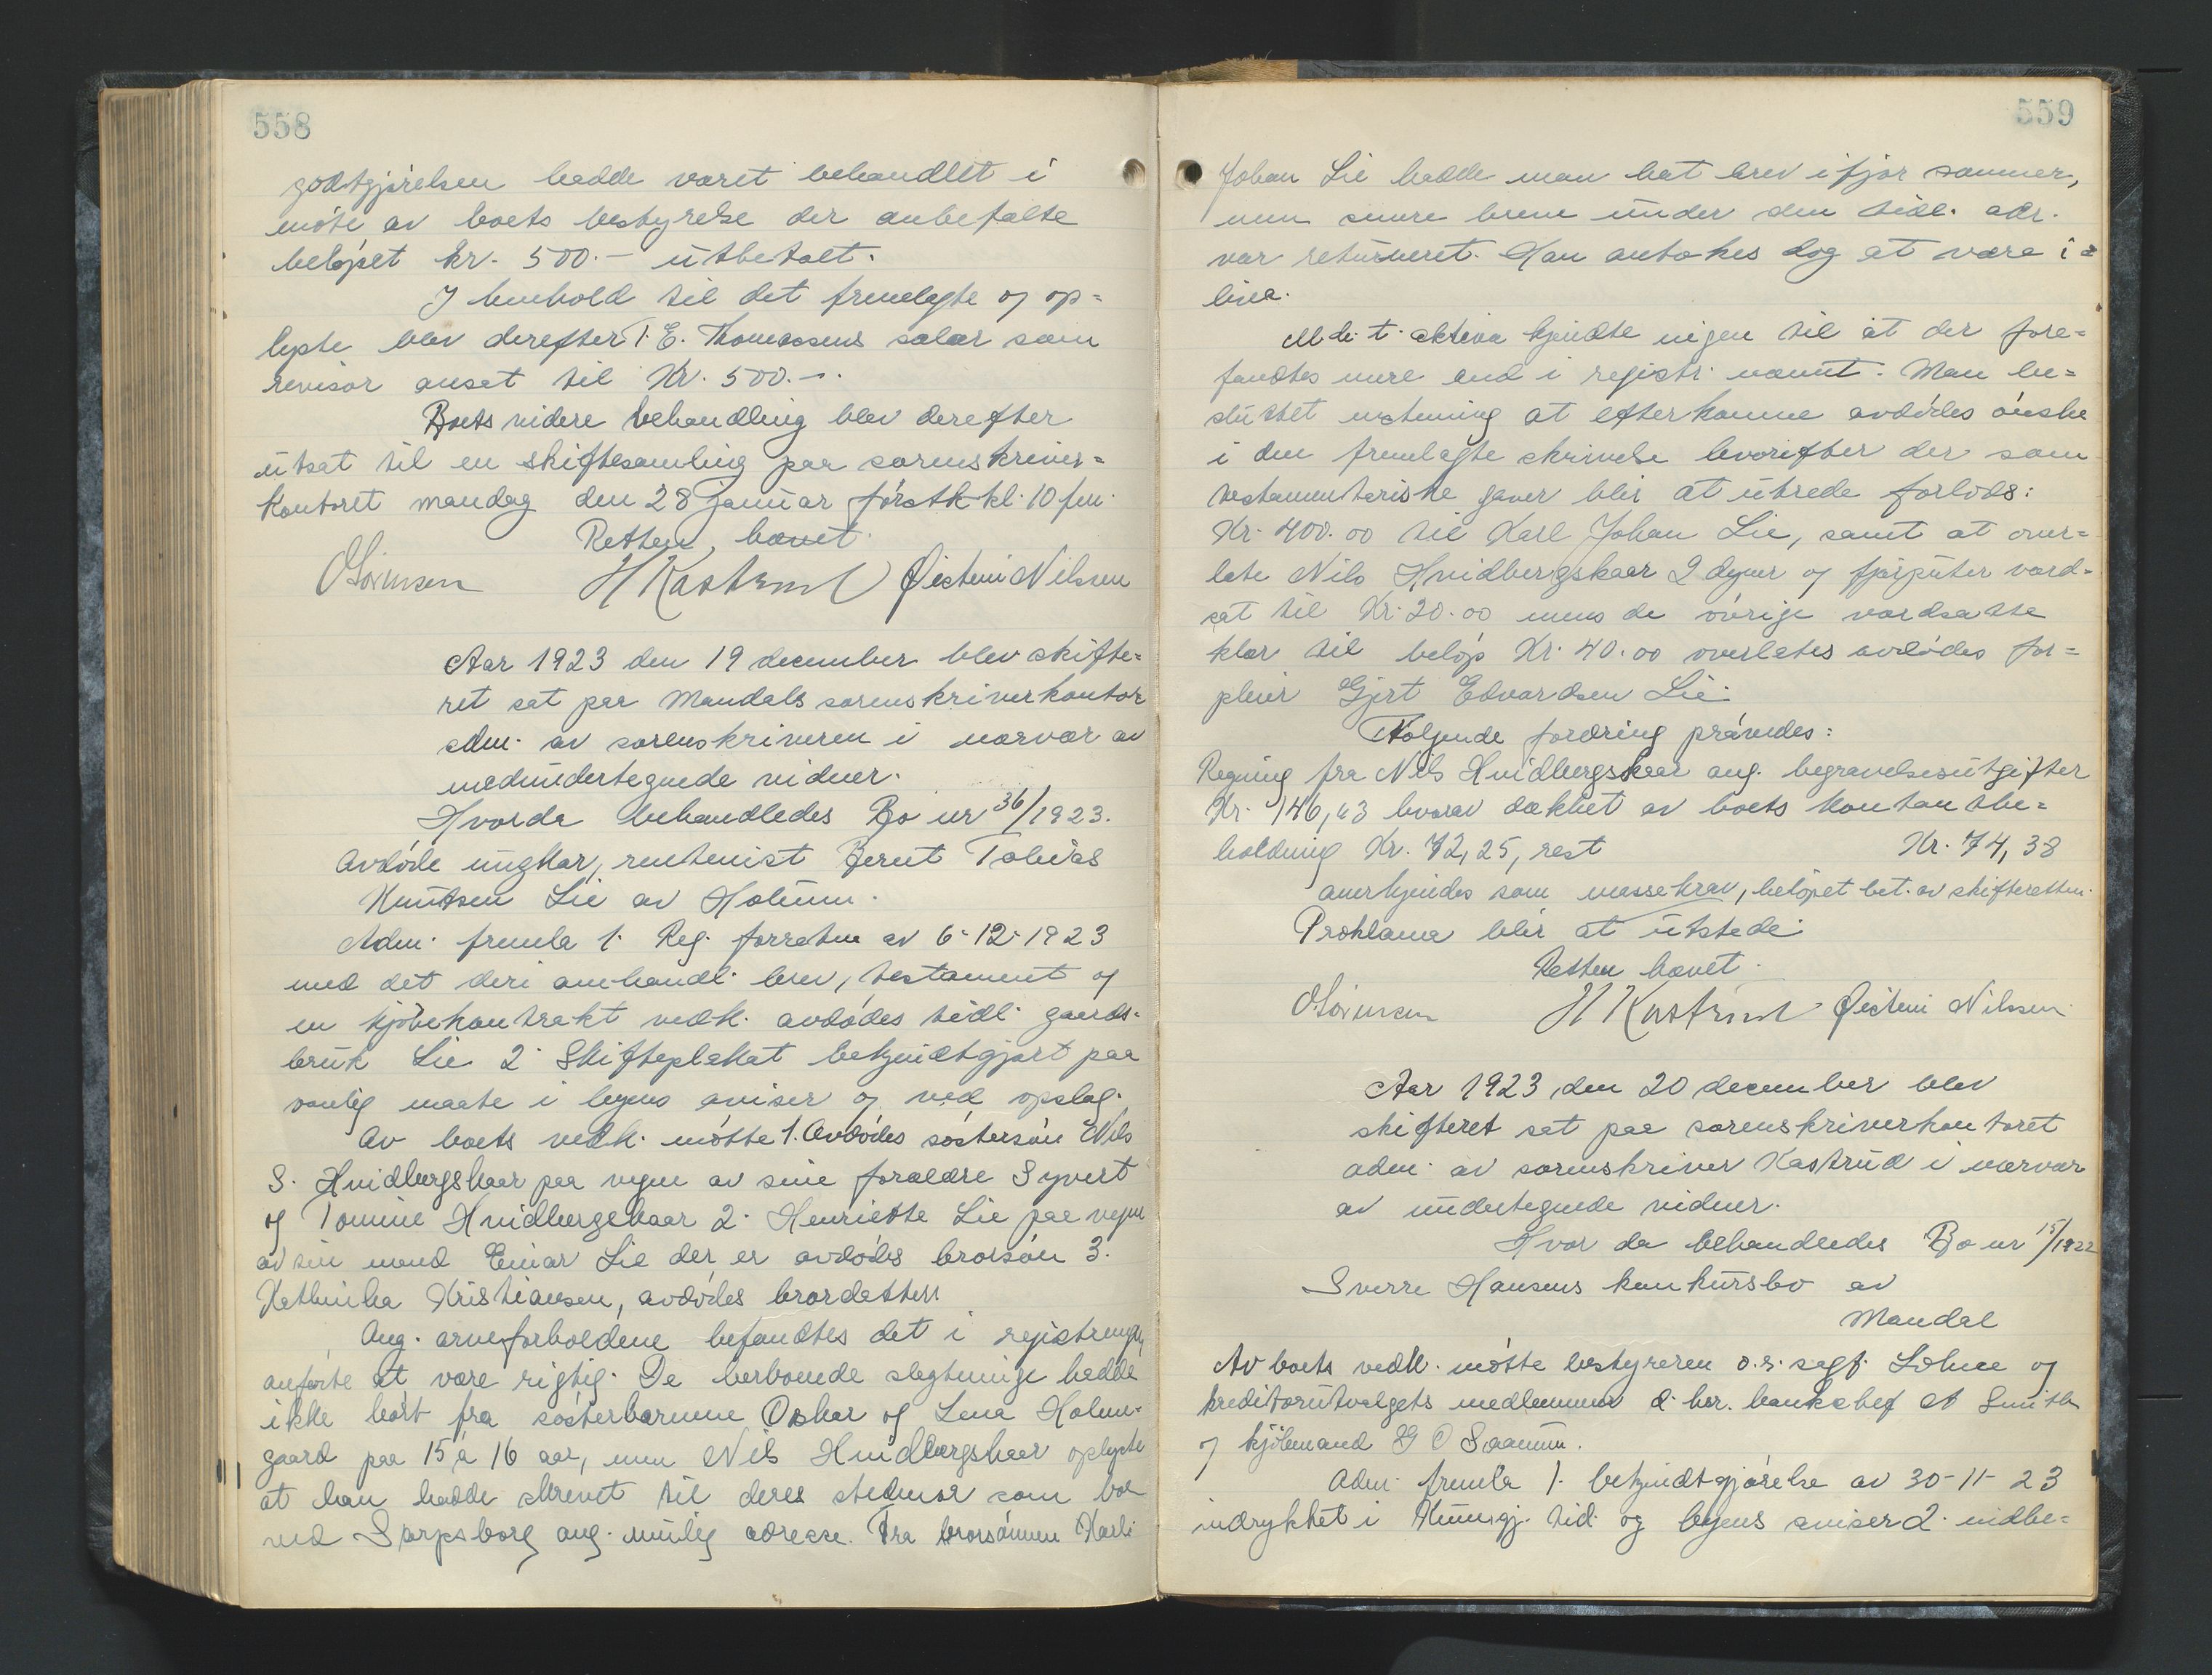 558
godtgjørelsen hadde været behandlet i
møte av boets bestyrelse der anbefalte
beløpet kr. 500.- utbetalt.
I henhold til det fremlagte og op=
lyste blev derefter T. E. Thomassens salær som
revisor anset til Kr. 500.-.
Boets videre behandling blev derefter
utsat til en skiftesamling paa sorenskriver=
kontoret mandag den 28 januar førstk kl. 10 fm.
Retten hævet.
O Sørensen H Kastrud Øistein Nilsen
Aar 1923 den 19 december blev skifte=
ret sat paa Mandals sorenskriverkontor
adm. av sorenskriveren i nærvær av
medundertegnede vidner.
Hvorda behandledes Bo nr 36/1923.
Avdøde ungkar, rentenist Bernt Tobias
Knutsen Lie av Holum.
Adm. fremla 1. Reg. forretn av 6-12-1923
med det deri omhandl. brev, testament og
en kjøbekontrakt vedk. avdødes tidl. gaards-
bruk Lie 2. Skifteplakat bekjendtgjort paa
vanlig maate i byens aviser og ved opslag.
Av boets vedk. møtte 1. Avdødes søstersøn Nils
S. Hvidbergskaar paa vegne av sine forældre Syvert
og Tomine Hvidbergskaar 2. Henriette Lie paa vegne
av sin mand Einar Lie der er avdødes brorsøn 3.
Kathinka Kristiansen, avdødes brordatter.
Ang. arveforholdene befandtes det i registrering
anførte at være rigtig. De herboende slegtninge hadde
ikke hørt fra søsterbarnene Oskar og Lena Holm=
gaard paa 15 à 16 aar, men Nils Hvidbergskaar oplyste
at han hadde skrevet til deres stedmor som bor
ved Sarpsborg ang. mulig adresse. Fra brorsønnen Karl
559
Johan Lie hadde man hat brev ifjor sommer,
men senere breve under den tidl. adr.
var returneret. Han antakes dog at være i
live.
M. h. t. aktiva kjendte ingen til at der fore=
fandtes mere end i registr. nævnt. Man be=
sluttet enstemmig at efterkomme avdødes ønske
i den fremlagte skrivelse hvorefter der som
testamentariske gaver blir at utrede forlods:
Kr. 400.00 til Karl Johan Lie, samt at over=
late Nils Hvidbergskaar 2 dyner og fjærputer værd=
sat til Kr. 20.00 mens de øvrige værdsatte
klær til beløp Kr. 40.00 overlates avdødes for=
pleier Gjert Edvardsen Lie.
Følgende fordring prøvedes:
Regning fra Nils Hvidbergskaar ang. begravelsesutgifter
Kr. 146,63 hvorav dækket av boets kontantbe=
holdning Kr. 72,25, rest Kr. 74,38
anerkjendes som massekrav, beløpet bet. av skifteretten.
Proklama blir at utstede.
Retten hævet.
O Sørensen H Kastrud Øistein Nilsen
Aar 1923 den 20 december blev
skifteret sat paa sorenskriverkontoret
adm. av sorenskriver Kastrud i nærvær
av undertegnede vidner.
Hvor da behandledes Bo nr 15/1922
Sverre Hansens konkursbo av
Mandal
Av boets vedk. møtte bestyreren o.r. sagf. Lohne og
kreditorutvalgets medlemmer d. hr. bankchef A Smith
og kjøbmand G O Saanum.
Adm. fremla 1. bekjendtgjørelse av 30-11-23
indrykket i Kunngj. tid. og byens aviser 2. indbe=